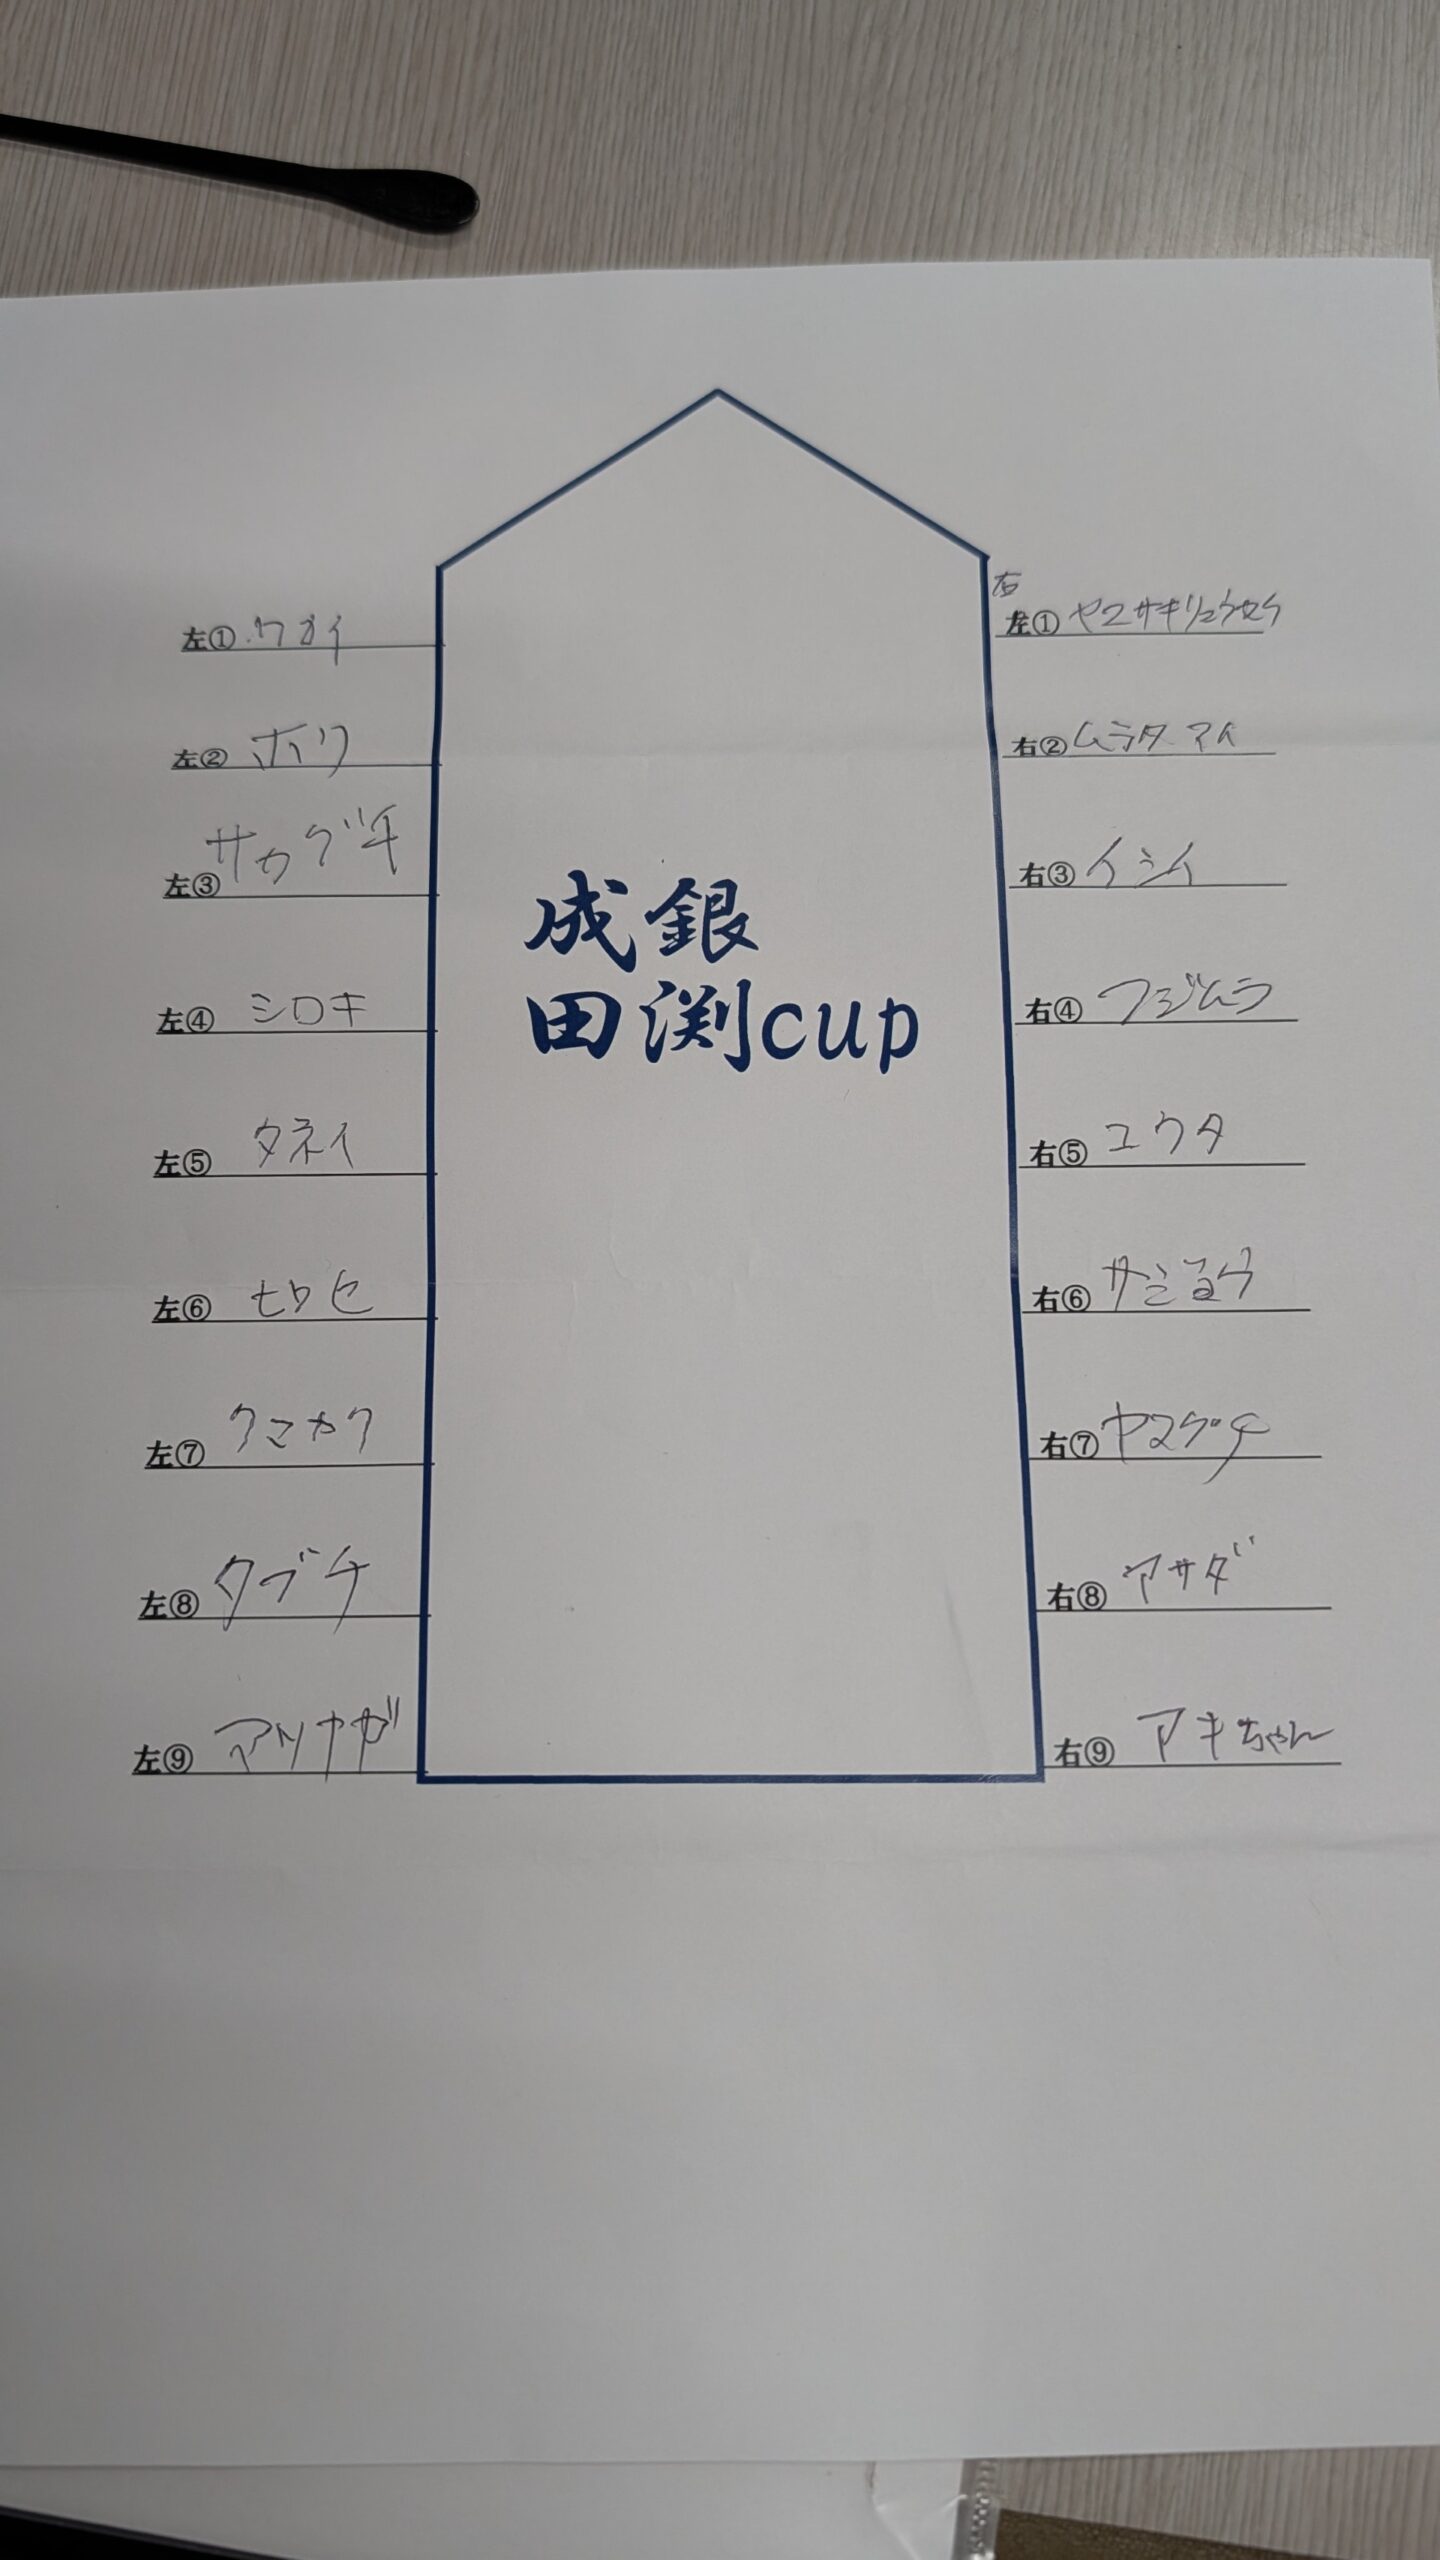 成銀
田渕cup
左①
左② ホリ
左③ サカグチ
左④ シロキ
左⑤ タネイ
左⑥
左⑦ クマカク
左⑧ タブチ
左⑨ マツナガ
右
左① ヤマサキリュウセイ
右② ムラタマイ
右③ イシイ
右④ フジムラ
右⑤ ユウタ
右⑥
右⑦ ヤマグチ
右⑧ アサダ
右⑨ アキちゃん